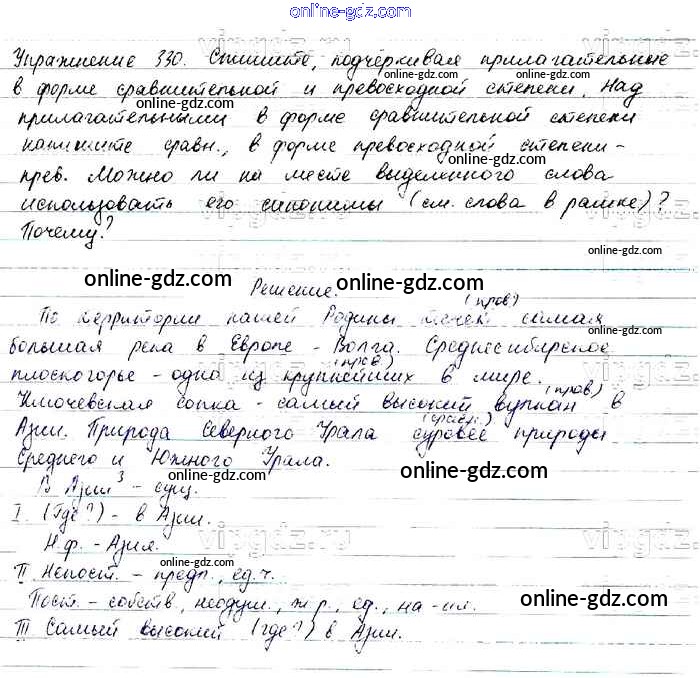 online-gdz.com
Упражнение 330. Спишите, подчёркивая прилагательные
online-gdz.com online-gdz.com
в форме сравнительной и превосходной степени. Над
online-gdz.com online-gdz.com
прилагательными в форме сравнительной степени
напишите сравн., в форме превосходной степени -
прев. Можно ли на месте выделенного слова
использовать его синонимы (см. слова в рамке)?
Почему?
online-gdz.com
online-gdz.com online-gdz.com
Решение.
(прев)
По территории нашей Родины течёт самая
большая река в Европе - Волга. Среднесибирское
(прев)
плоскогорье - одно из крупнейших в мире.
(прев)
Ключевская сопка - самый высокий вулкан в
(сравн.)
Азии. Природа Северного Урала суровее природы
online-gdz.com
Среднего и Южного Урала.
online-gdz.com
В Азии³ - сущ.
I. (Где?) - в Азии.
Н.ф. - Азия.
online-gdz.com
II Непост. - предл., ед.ч.
Пост. - собств., неодуш., ж.р., ед., на -ия.
online-gdz.com
III Самый высокий (где?) в Азии.
online-gdz.com